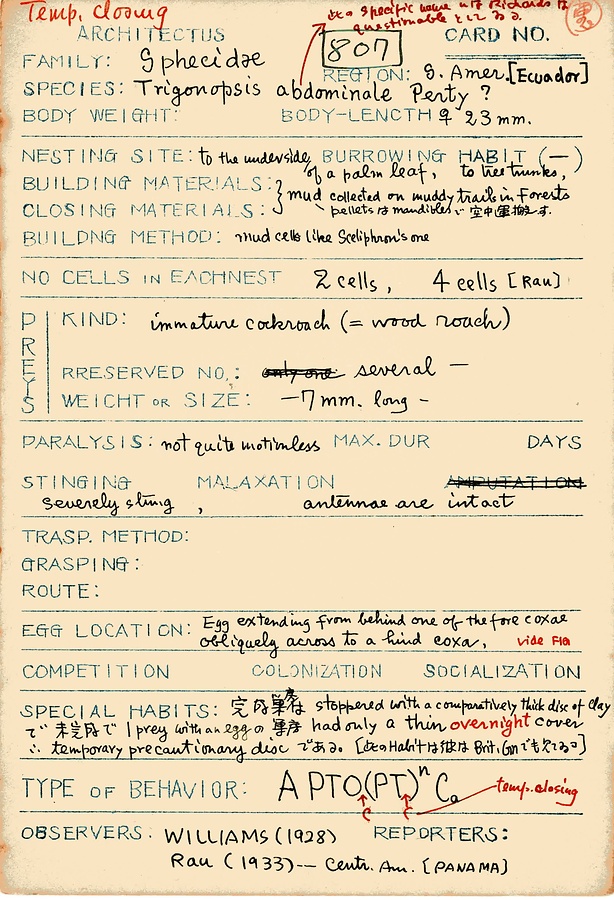 Temp. closing
此の specific name は Richards は
questionable としてゐる.
ARCHITECTUS
807
CARD NO.
FAMILY: Sphecidae
REGION: S. Amer. [Ecuador]
SPECIES: Trigonopsis abdominale Perty ?
BODY WEIGHT: BODY-LENGTH ♀ 23 mm.
NESTING SITE: to the underside of a palm leaf, to tree trunks,
BURROWING HABIT (—)
BUILDING MATERIALS: } mud collected on muddy trails in forests
CLOSING MATERIALS: pellets は mandibles で 空中運搬す.
BUILDNG METHOD: mud cells like Sceliphron's one
NO CELLS IN EACHNEST 2 cells, 4 cells [Rau]
PREYS
KIND: immature cockroach (= wood roach)
RRESERVED NO.: only one several —
WEICHT OR SIZE: —7 mm. long -
PARALYSIS: not quite motionless MAX. DUR DAYS
STINGING MALAXATION AMPUTATION
severely stung, antennae are intact
TRASP. METHOD:
GRASPING:
ROUTE:
EGG LOCATION: Egg extending from behind one of the fore coxae
obliquely across to a hind coxa, vide FIG
COMPETITION COLONIZATION SOCIALIZATION
SPECIAL HABITS: 完成巣房は stoppered with a comparatively thick disc of clay
で 未完成で 1 prey with an egg の 巣房 had only a thin overnight cover
∴ temporary precautionary disc である. [此のHabitは彼は Brit. Gui でも見てゐる]
TYPE OF BEHAVIOR: A PTO(PT)ⁿ C. temp. closing
C C
OBSERVERS: WILLIAMS (1928) REPORTERS:
Rau (1933)-- Centr. Am. [PANAMA]